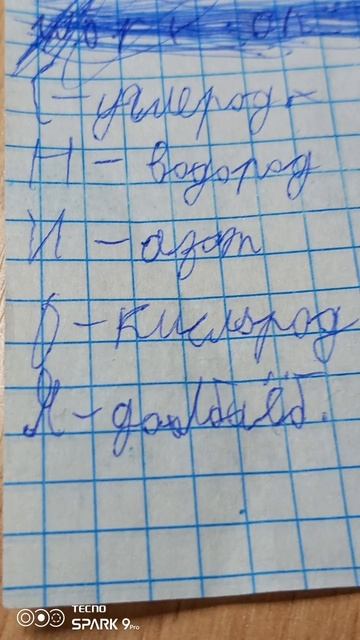 С - углерод
Н - водород
И - азот
О - кислород
Я - долбоёб.
TECNO
SPARK 9Pro